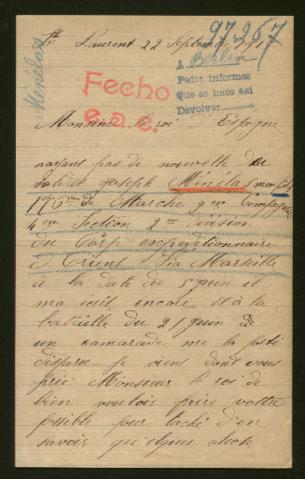 Ménélas
97267
St Laurent 22 Septembre 191
A Berlin
Pedir informes
Que se hace así
Devolver
Fecho
e.a.e.
Monsieur le roi d'Espagne
nayant pas de nouvelle de
soldat joseph Ménélas mon fils
176me de Marche 9me Compagnie
4me Section 2me division
du Corp expeditionnaire
d'Orient Via Marseille
à la date du 5 juin il
ma écrit encore et à la
bataille du 21 juin
un camarade me la porté
disparu je viens dont vous
prié Monsieur le roi de
bien vouloir faire vottre
possible pour taché d'en
savoir quelques chose